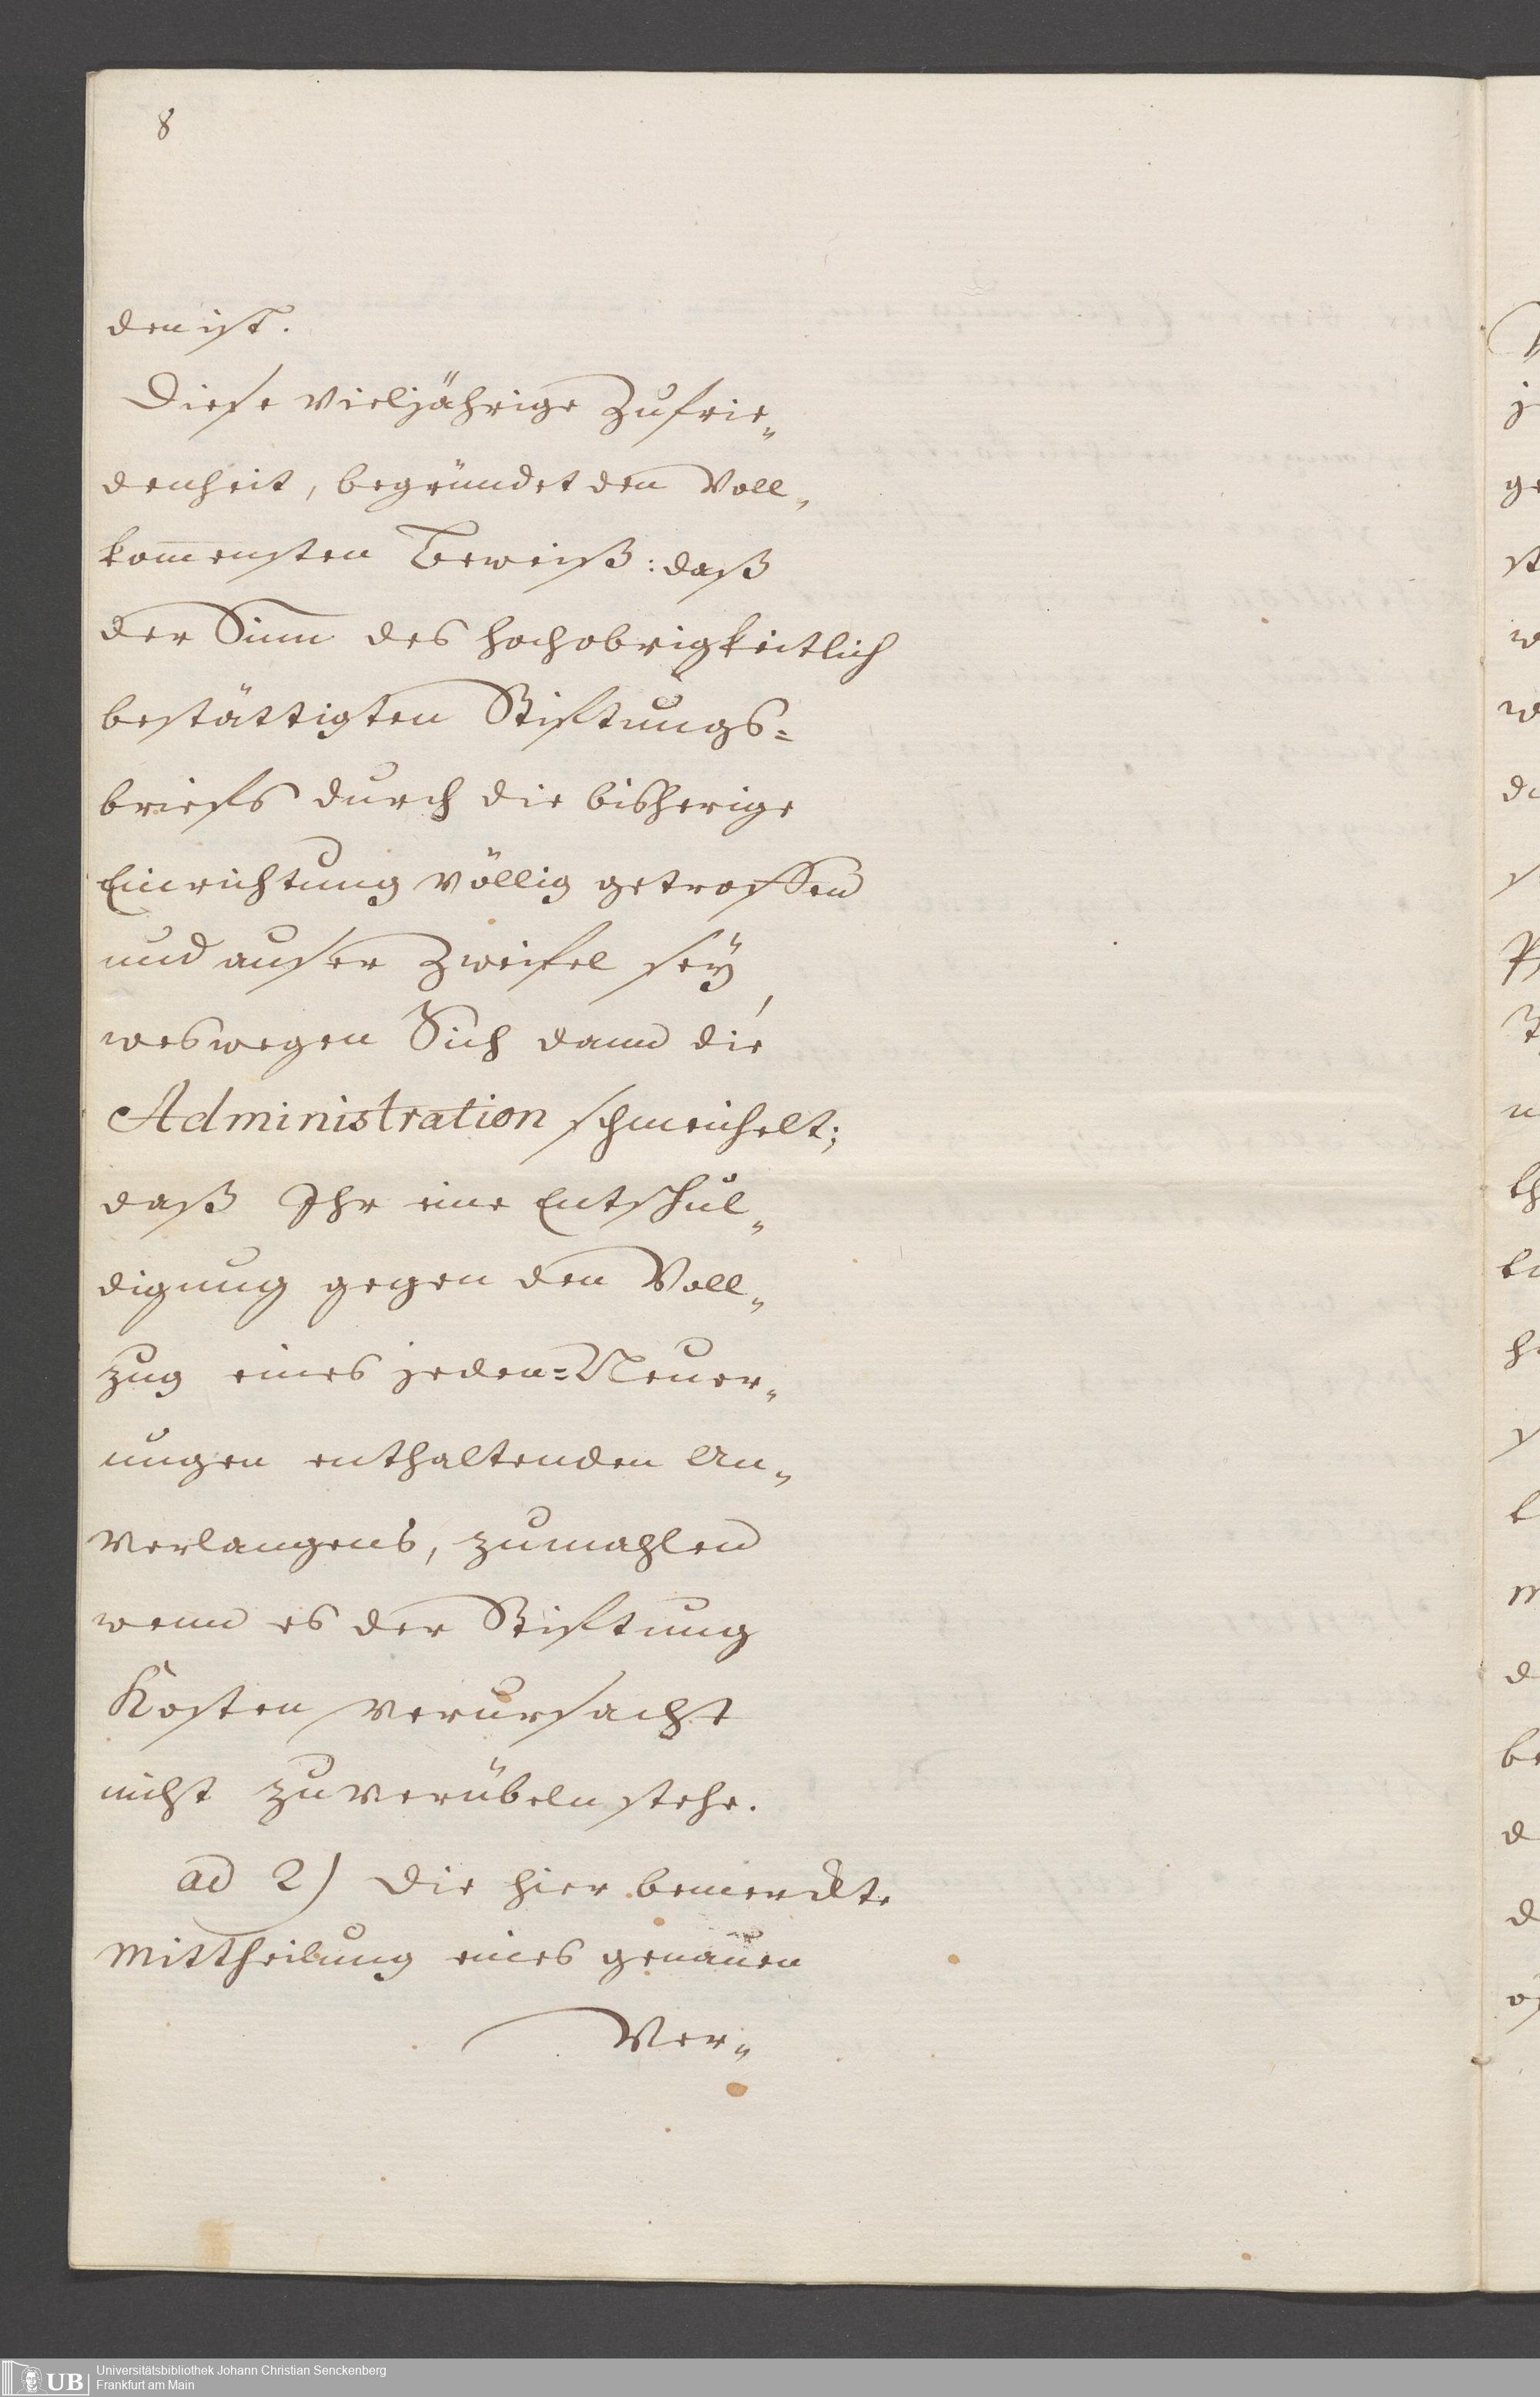 8
den ist.
Diese vieljährige Zufrie„
denheit, begründet den Voll„
kom̅ensten Beweiß: daß
der Sinn des hochobrigkeitlich
bestättigten Stiftungs=
briefs durch die bisherige
Einrichtung völlig getroffen
und auser Zweifel seÿ,
weswegen Sich dann die
Administration schmeichelt;
daß Ihr eine Entschul„
digung gegen den Voll„
zug eines jeden=Neuer„
ungen enthaltenden An„
verlangens, zumahlen
wenn es der Stiftung
Kosten verursacht
nicht zuverübeln stehe.
ad 2) Die hier bemerckte
Mittheilung eines genauen
Ver„
UB
Universitätsbibliothek Johann Christian Senckenberg
Frankfurt am Main